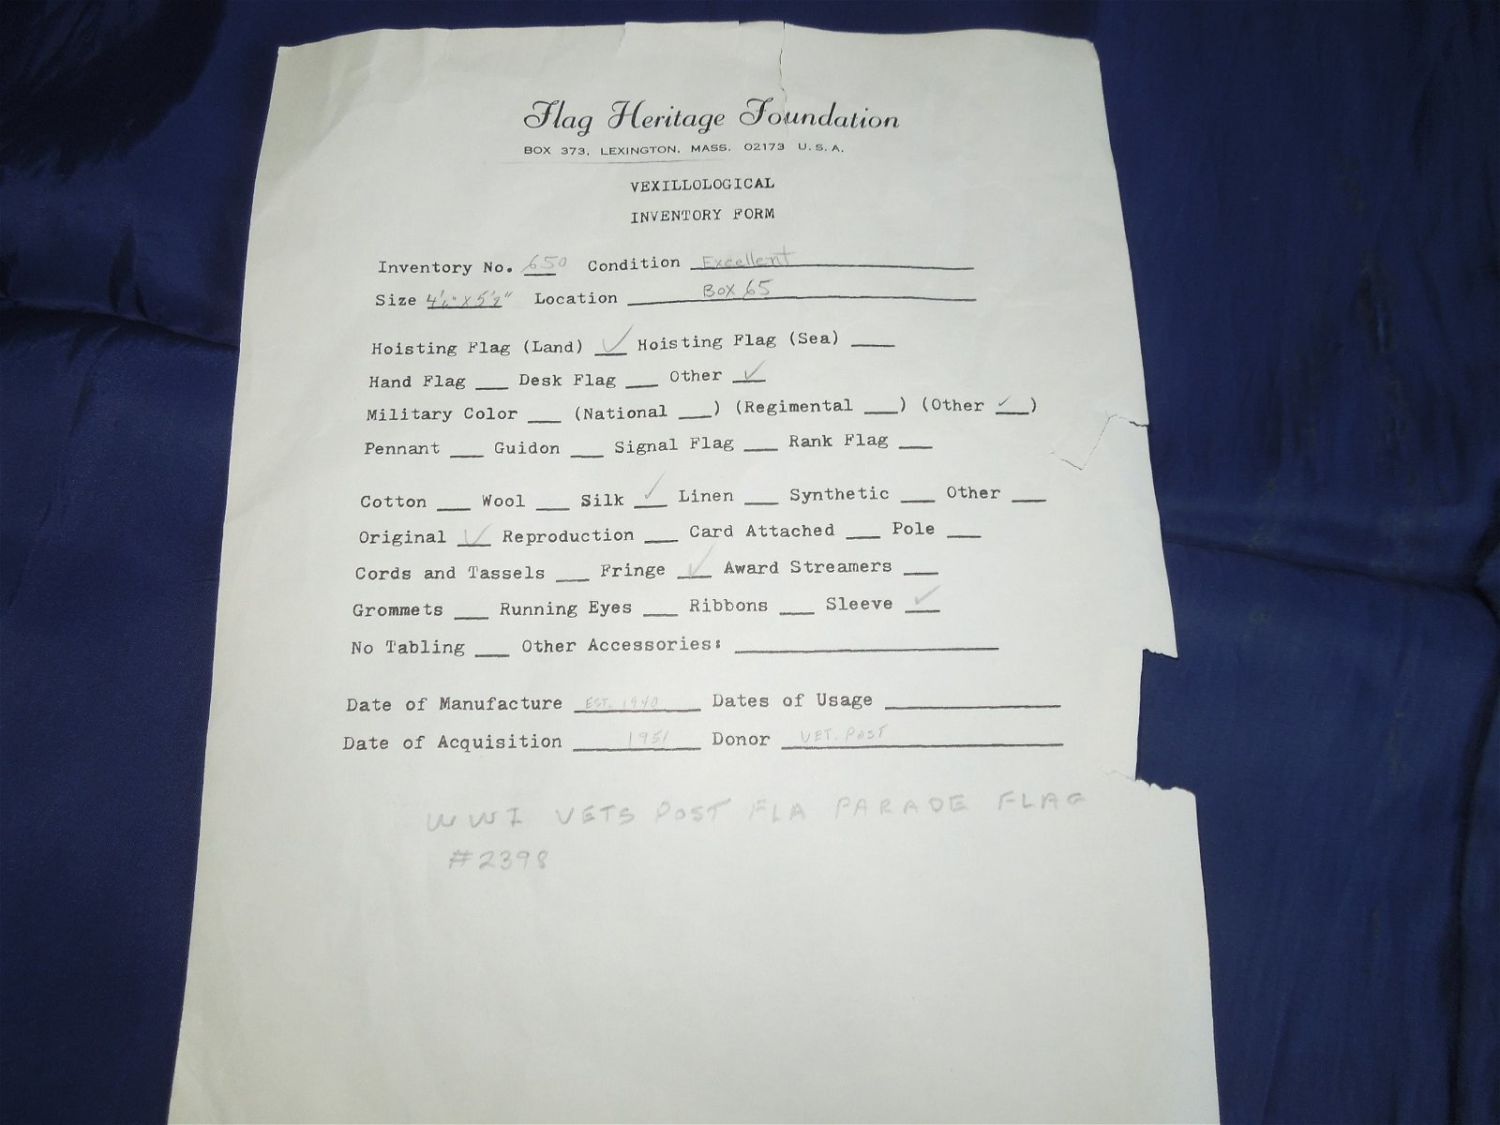 Flag Heritage Foundation
BOX 373, LEXINGTON, MASS. 02173 U.S.A.
VEXILLOLOGICAL
INVENTORY FORM
Inventory No. 650 Condition Excellent
Size 4'6" X 5'2" Location Box 65
Hoisting Flag (Land) ✓ Hoisting Flag (Sea) ___
Hand Flag ___ Desk Flag ___ Other ✓
Military Color ___ (National ___) (Regimental ___) (Other ✓)
Pennant ___ Guidon ___ Signal Flag ___ Rank Flag ___
Cotton ___ Wool ___ Silk ✓ Linen ___ Synthetic ___ Other ___
Original ✓ Reproduction ___ Card Attached ___ Pole ___
Cords and Tassels ___ Fringe ✓ Award Streamers ___
Grommets ___ Running Eyes ___ Ribbons ___ Sleeve ✓
No Tabling ___ Other Accessories: ___
Date of Manufacture EST. 1940 Dates of Usage ___
Date of Acquisition 1951 Donor VET. POST
WWI VETS POST FLA PARADE FLAG
#2398